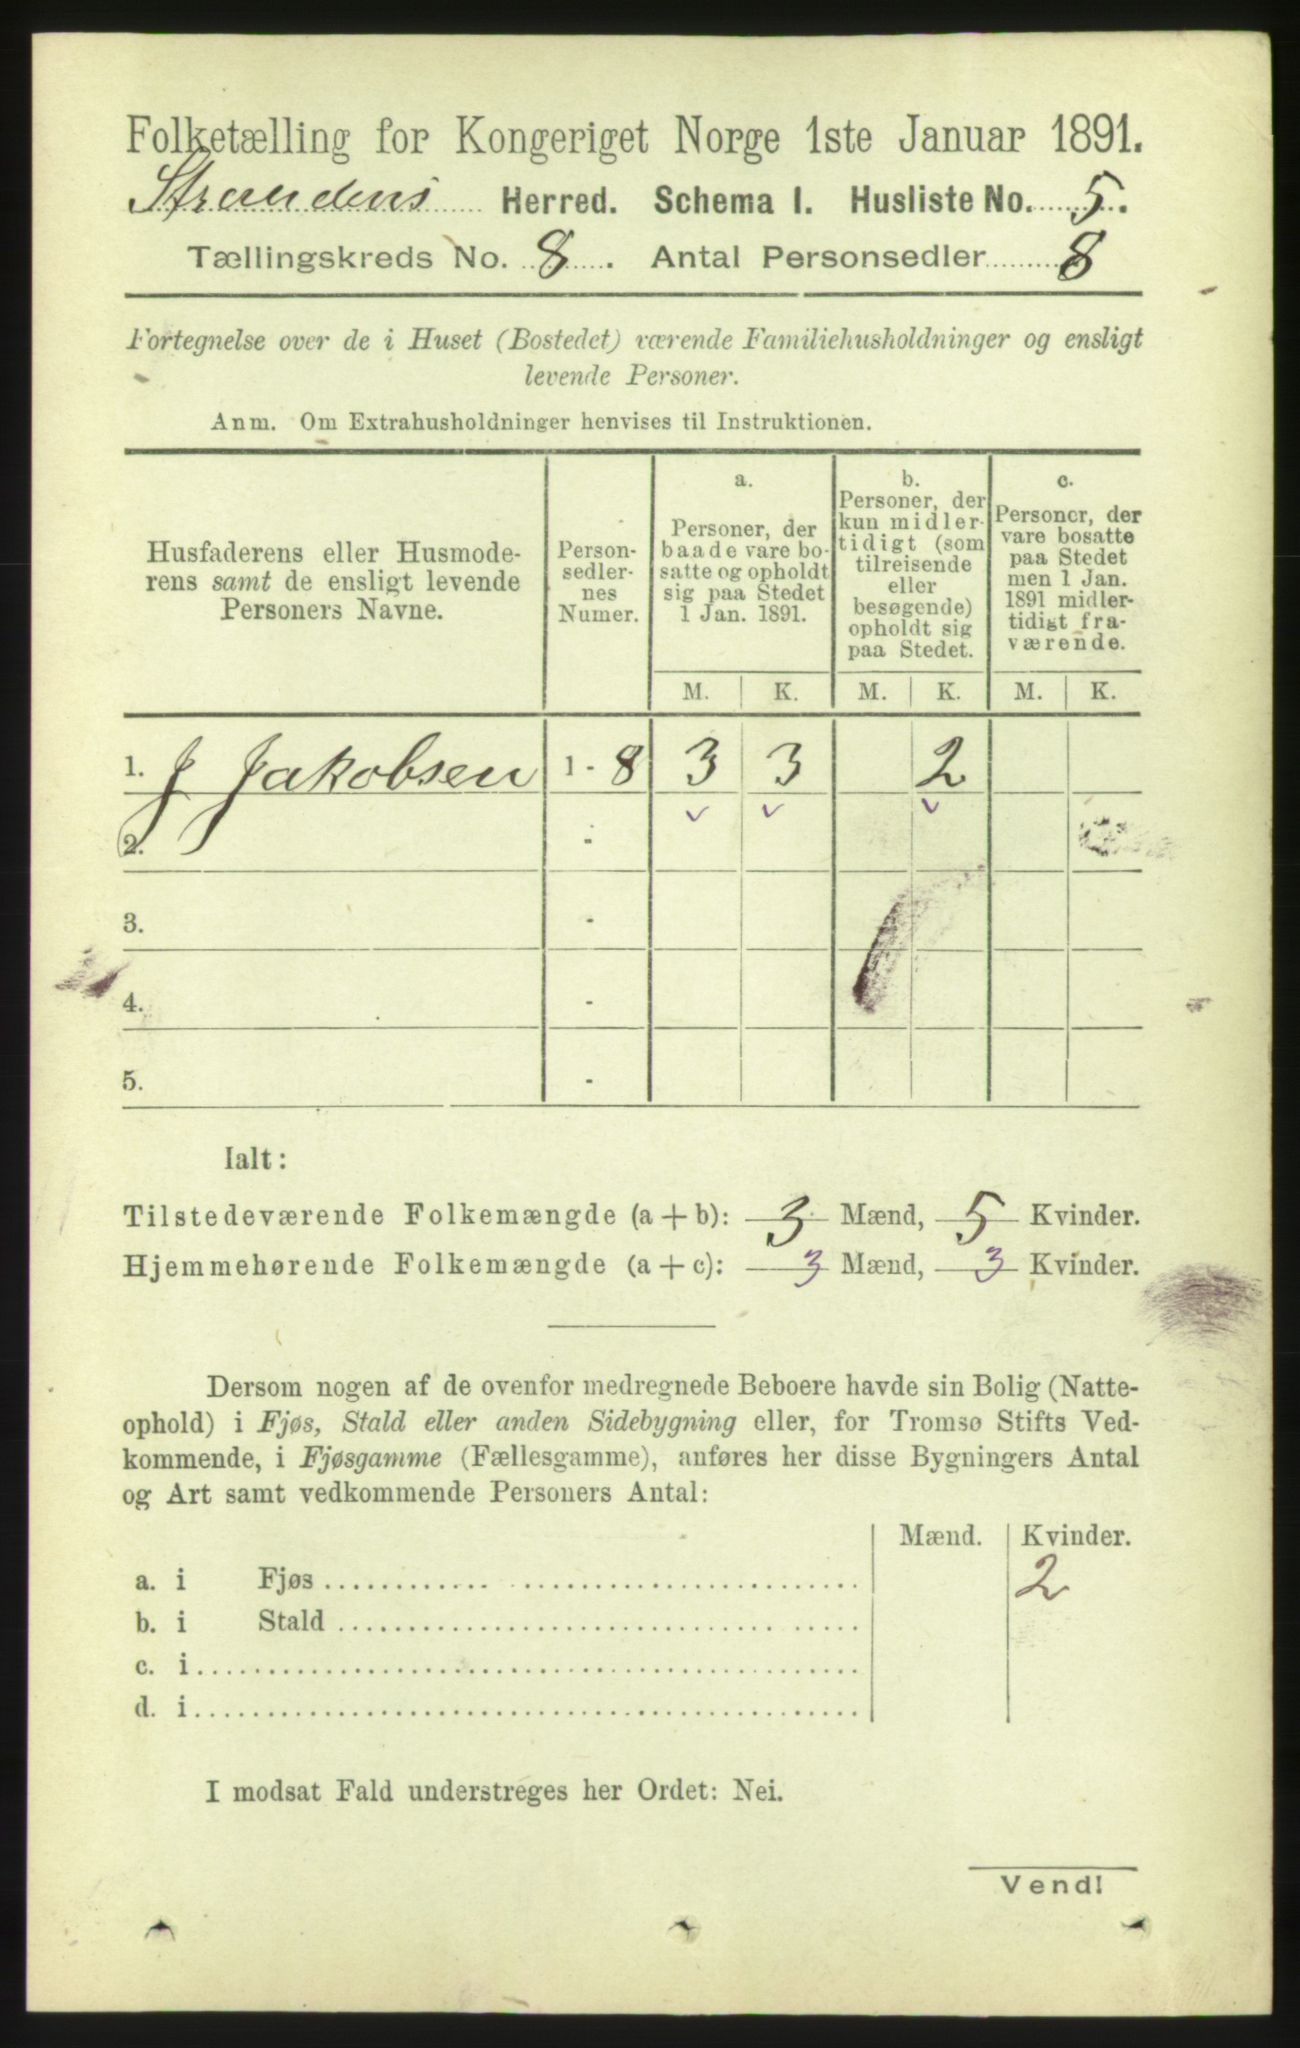 Folketælling for Kongeriget Norge 1ste Januar 1891.
Strandens Herred. Schema I. Husliste No. 5.
Tællingskreds No. 8. Antal Personsedler 8
Fortegnelse over de i Huset (Bostedet) værende Familiehusholdninger og ensligt
levende Personer.
Anm. Om Extrahusholdninger henvises til Instruktionen.
Husfaderens eller Husmode-
rens samt de ensligt levende
Personers Navne.
Person-
sedler-
nes
Numer.
a.
Personer, der
baade vare bo-
satte og opholdt
sig paa Stedet
1 Jan. 1891.
b.
Personer, der
kun midler-
tidigt (som
tilreisende
eller
besøgende)
opholdt sig
paa Stedet.
c.
Personer, der
vare bosatte
paa Stedet
men 1 Jan.
1891 midler-
tidigt fra-
værende.
M. K. M. K. M. K.
1. J Jakobsen 1 - 8 3 3 2
2. -
3. -
4. -
5. -
Ialt:
Tilstedeværende Folkemængde (a + b): 3 Mænd, 5 Kvinder.
Hjemmehørende Folkemængde (a + c): 3 Mænd, 3 Kvinder.
Dersom nogen af de ovenfor medregnede Beboere havde sin Bolig (Natte-
ophold) i Fjøs, Stald eller anden Sidebygning eller, for Tromsø Stifts Ved-
kommende, i Fjøsgamme (Fællesgamme), anføres her disse Bygningers Antal
og Art samt vedkommende Personers Antal:
Mænd. Kvinder.
a. i Fjøs 2
b. i Stald
c. i
d. i
I modsat Fald understreges her Ordet: Nei.
Vend!